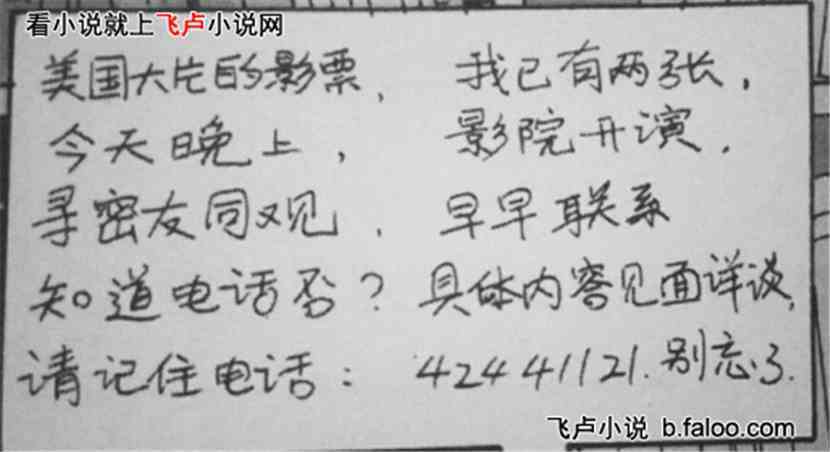 看小说就上飞卢小说网
美国大片的影票, 我已有两张,
今天晚上, 影院开演.
寻密友同观, 早早联系
知道电话否? 具体内容见面详谈,
请记住电话: 42441121. 别忘了.
飞卢小说 b.faloo.com